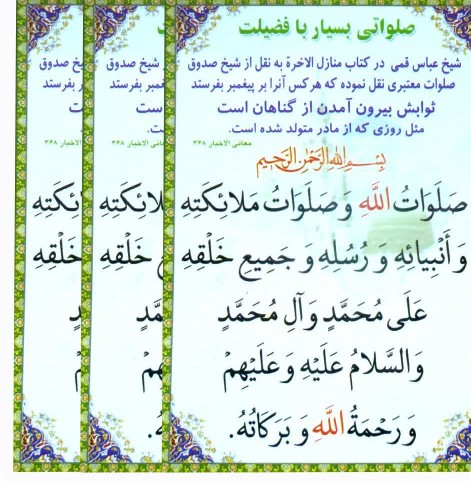 صلواتی بسیار با فضیلت
شیخ عباس قمی در کتاب منازل الاخرة به نقل از شیخ صدوق
صلوات معتبری نقل نموده که هر کس آنرا بر پیغمبر بفرستد
ثوابش بیرون آمدن از گناهان است
مثل روزی که از مادر متولد شده است.
معانی الاخبار ۳۶۸
بِسْمِ اللهِ الرَّحْمٰنِ الرَّحِیمِ
صَلَوَاتُ اللهِ وَ صَلَوَاتُ مَلائكَتِهِ
وَ أَنْبِیائِهِ وَ رُسُلِهِ وَ جَمِیعِ خَلْقِهِ
عَلَی مُحَمَّدٍ وَ آلِ مُحَمَّدٍ
وَالسَّلامُ عَلَیْهِ وَ عَلَیْهِمْ
وَ رَحْمَةُ اللهِ وَ بَرَكَاتُهُ.
شیخ صدوق
بفرستد
است
ست.
الاخبار ۳۶۸
خَلْقِهِ
شیخ صدوق
بفرستد
الاخبار ۳۶۸
خَلْقِهِ